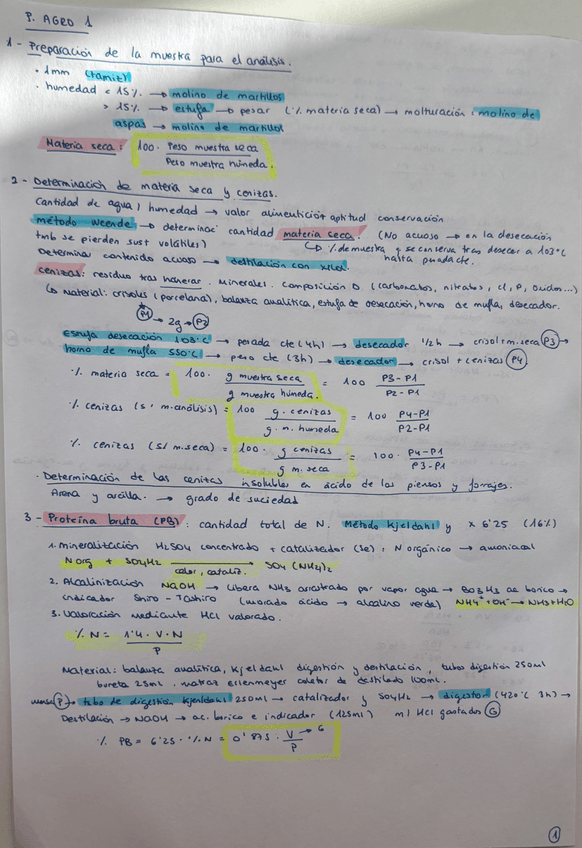 P. AGRO 1
1 - Preparación de la muestra para el análisis.
· 1mm (tamiz)
· humedad < 15% → molino de martillos
> 15% → estufa → pesar (% materia seca) → molturación: molino de
aspas → molino de martillos
Materia seca: 100 · Peso muestra seca / Peso muestra húmeda.
2 - Determinación de materia seca y cenizas.
Cantidad de agua / humedad → valor alimenticio y aptitud conservación
método Weende → determinar cantidad materia seca. (No acuoso → en la desecación
tmb se pierden sust volátiles) ↳ % de muestra q se conserva tras desecar a 103ºC
Determinar contenido acuoso → destilación con xileno. hasta pesada cte.
cenizas: residuo tras incinerar. Minerales. Composición D (carbonatos, nitratos, cl, P, óxidos...)
↳ Material: crisoles (porcelana), balanza analítica, estufa de desecación, horno de mufla, desecador.
(P1) → 2g → (P2)
Estufa desecación 103ºC → pesada cte (4h) → desecador 1/2 h → crisol + m. seca (P3) →
horno de mufla 550ºC → peso cte (3h) → desecador → crisol + cenizas (P4)
% materia seca = 100 · g muestra seca / g muestra húmeda. = 100 P3-P1 / P2-P1
% cenizas (s/ m. análisis) = 100 g. cenizas / g. m. húmeda = 100 P4-P1 / P2-P1
% cenizas (s/ m. seca) = 100 · g cenizas / g m. seca = 100 · P4-P1 / P3-P1
· Determinación de las cenizas insolubles en ácido de los piensos y forrajes.
Arena y arcilla. → grado de suciedad
3 - Proteína bruta (PB): cantidad total de N. Método Kjeldahl y x 6'25 (16%)
1. Mineralización H2SO4 concentrado + catalizador (Se), N orgánico → amoniacal
N org + SO4H2 → calor, cataliz. SO4(NH4)2
2. Alcalinización NaOH → Libera NH3 arrastrado por vapor agua → BO3H3 ac bórico →
indicador Shiro - Tashiro (morado ácido → alcalino verde) NH4+ + OH- → NH3 + H2O
3. Valoración mediante HCl valorado.
% N = 1'4 · V · N / P
Material: balanza analítica, Kjeldahl digestión y destilación, tubos digestión 250ml
bureta 25ml. matraz Erlenmeyer colector de destilado 100ml.
(P) → tubo de digestión Kjeldahl 250ml → catalizador y SO4H2 → digestor (420ºC 3h) →
Destilación → NaOH → ac. bórico e indicador (125ml) ml HCl gastados (G)
% PB = 6'25 · % N = 0'875 · V / P → G
1